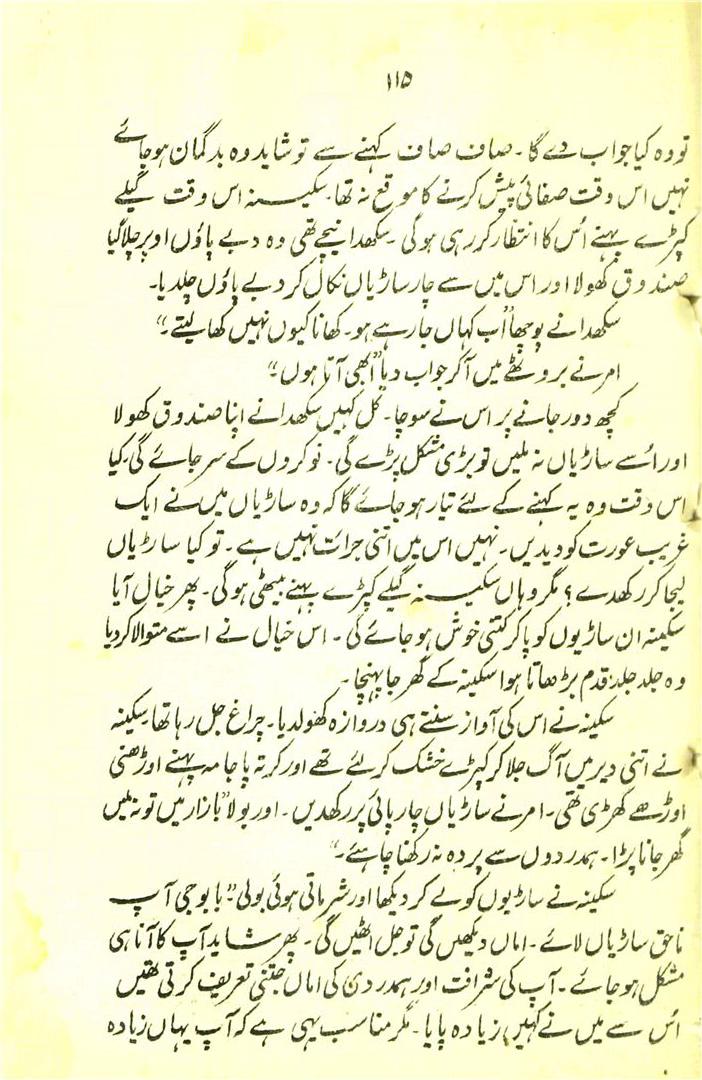 ۱۱۵
تو وہ کیا جواب دے گا۔ صاف صاف کہنے سے تو شاید وہ بدگمان ہو جائے
نہیں اس وقت صفائی پیش کرنے کا موقع نہ تھا۔ سکینہ اس وقت گیلے
کپڑے پہنے اُس کا انتظار کر رہی ہوگی۔ سکھدا نیچے تھی وہ دبے پاؤں اوپر چلا گیا
صندوق کھولا اور اس میں سے چار ساڑیاں نکال کر دبے پاؤں چلدیا۔
سکھدا نے پوچھا "اب کہاں جا رہے ہو۔ کھانا کیوں نہیں کھا لیتے۔"
امر نے بروٹھے میں آکر جواب دیا "ابھی آتا ہوں۔"
کچھ دور جانے پر اس نے سوچا۔ کل کہیں سکھدا نے اپنا صندوق کھولا
اور اُسے ساڑیاں نہ ملیں تو بڑی مشکل پڑے گی۔ نوکروں کے سر جائے گی۔ کیا
اس وقت وہ یہ کہنے کے لئے تیار ہو جائے گا کہ وہ ساڑیاں میں نے ایک
غریب عورت کو دیدیں۔ نہیں اس میں اتنی جرات نہیں ہے۔ تو کیا ساڑیاں
لیجا کر رکھدے؟ مگر وہاں سکینہ گیلے کپڑے پہنے بیٹھی ہوگی۔ پھر خیال آیا
سکینہ ان ساڑیوں کو پاکر کتنی خوش ہو جائے گی۔ اس خیال نے اسے متوالا کر دیا
وہ جلد جلد قدم بڑھاتا ہوا سکینہ کے گھر جا پہنچا۔
سکینہ نے اس کی آواز سنتے ہی دروازہ کھولدیا۔ چراغ جل رہا تھا۔ سکینہ
نے اتنی دیر میں آگ جلا کر کپڑے خشک کر لئے تھے اور کرتہ پاجامہ پہنے اوڑھنی
اوڑھے کھڑی تھی۔ امر نے ساڑیاں چارپائی پر رکھدیں۔ اور بولا "بازار میں تو نہ ملیں
گھر جانا پڑا۔ ہمدردوں سے پردہ نہ رکھنا چاہئے۔"
سکینہ نے ساڑیوں کو لے کر دیکھا اور شرماتی ہوئی بولی "بابوجی آپ
ناحق ساڑیاں لائے۔ اماں دیکھیں گی تو جل اٹھیں گی۔ پھر شاید آپ کا آنا ہی
مشکل ہو جائے۔ آپ کی شرافت اور ہمدردی کی اماں جتنی تعریف کرتی تھیں
اُس سے میں نے کہیں زیادہ پایا۔ مگر مناسب یہی ہے کہ آپ یہاں زیادہ